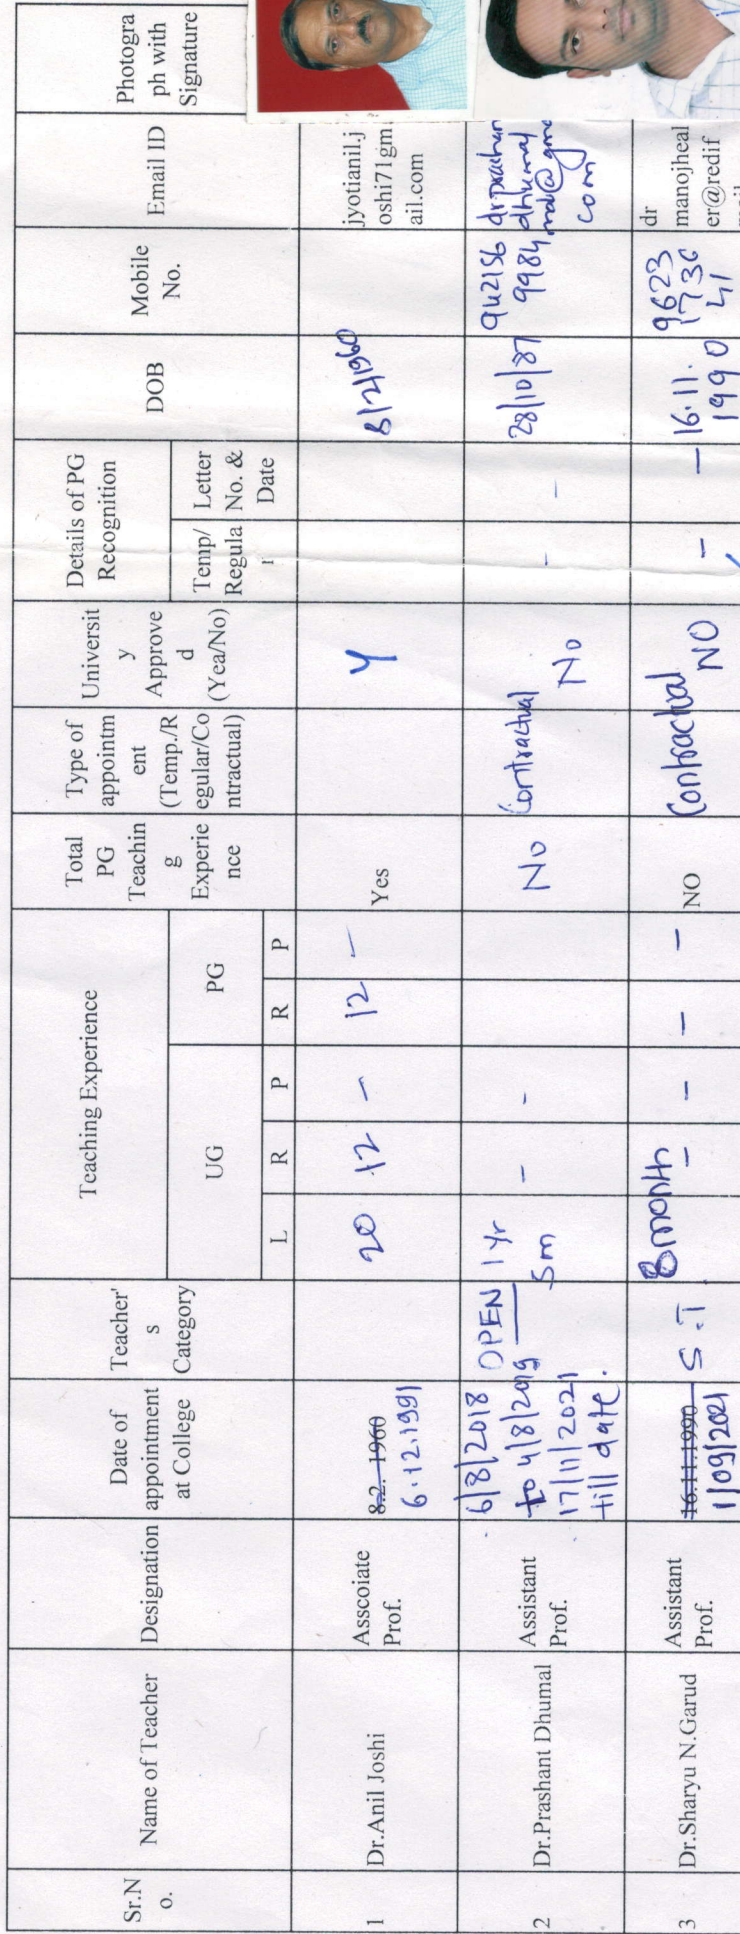 Sr.N
o.
Name of Teacher
Designation
Date of
appointment
at College
Teacher'
s
Category
Teaching Experience
UG
PG
L
R
P
R
P
Total
PG
Teachin
g
Experie
nce
Type of
appointm
ent
(Temp./R
egular/Co
ntractual)
Universit
y
Approve
d
(Yea/No)
Details of PG
Recognition
Temp/
Regula
r
Letter
No. &
Date
DOB
Mobile
No.
Email ID
Photogra
ph with
Signature
1
Dr.Anil Joshi
Asscoiate
Prof.
8.2. 1960
6.12.1991
20
12
-
12
-
Yes
Y
8/2/1960
jyotianil.j
oshi71gm
ail.com
2
Dr.Prashant Dhumal
Assistant
Prof.
6/8/2018
to 4/8/2019
17/11/2021
till date.
OPEN
1 yr
5m
-
-
No
Contractual
No
-
-
28/10/87
942156
9984
dhumal
com
3
Dr.Sharyu N.Garud
Assistant
Prof.
16.11.1990
1/09/2021
S.T
8month
-
-
-
-
NO
Contractual
NO
-
-
16.11.
1990
9623
1736
41
dr
manojheal
er@redif